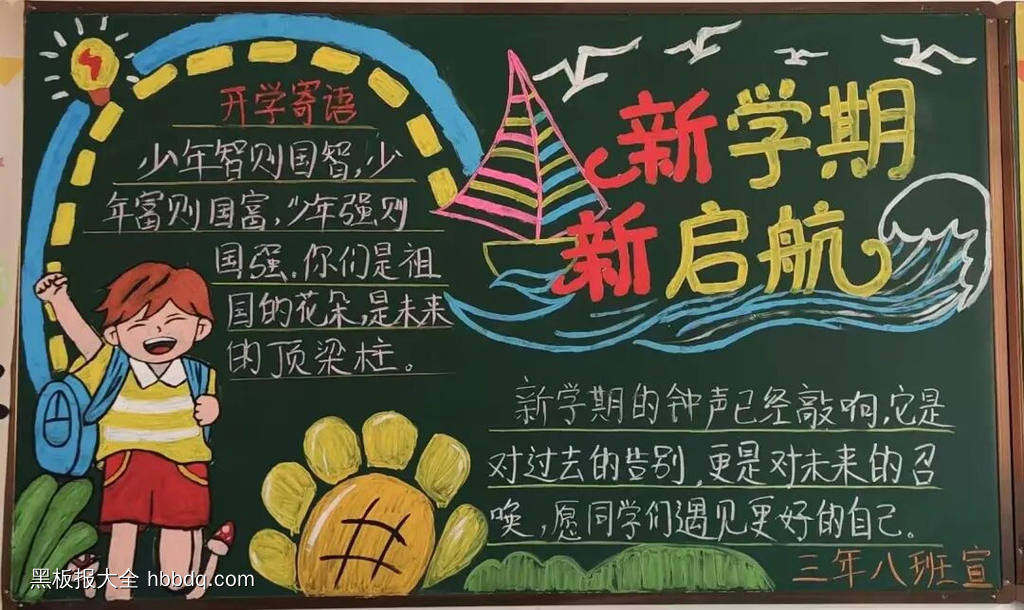 新学期
新启航
开学寄语
少年智则国智,少
年富则国富,少年强则
国强、你们是祖
国的花朵,是未来
的顶梁柱。
新学期的钟声已经敲响,它是
对过去的告别,更是对未来的召
唤,愿同学们遇见更好的自己。
三年八班宣
黑板报大全 hbbdq.com